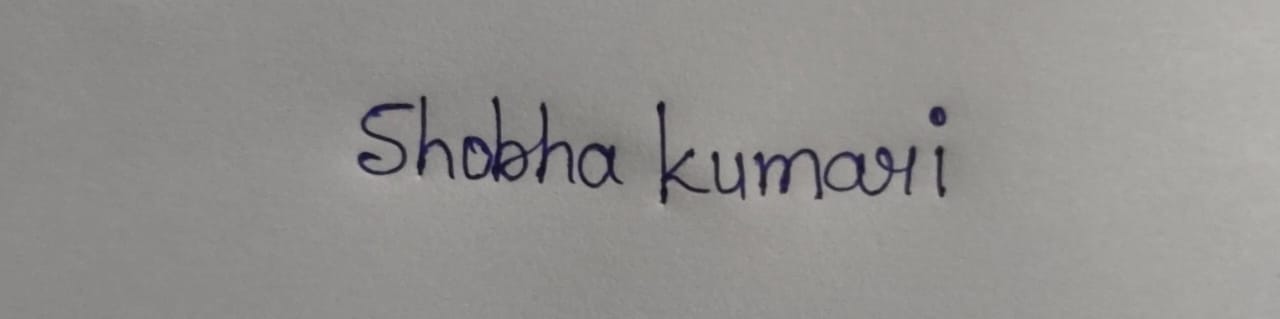 Shobha kumari